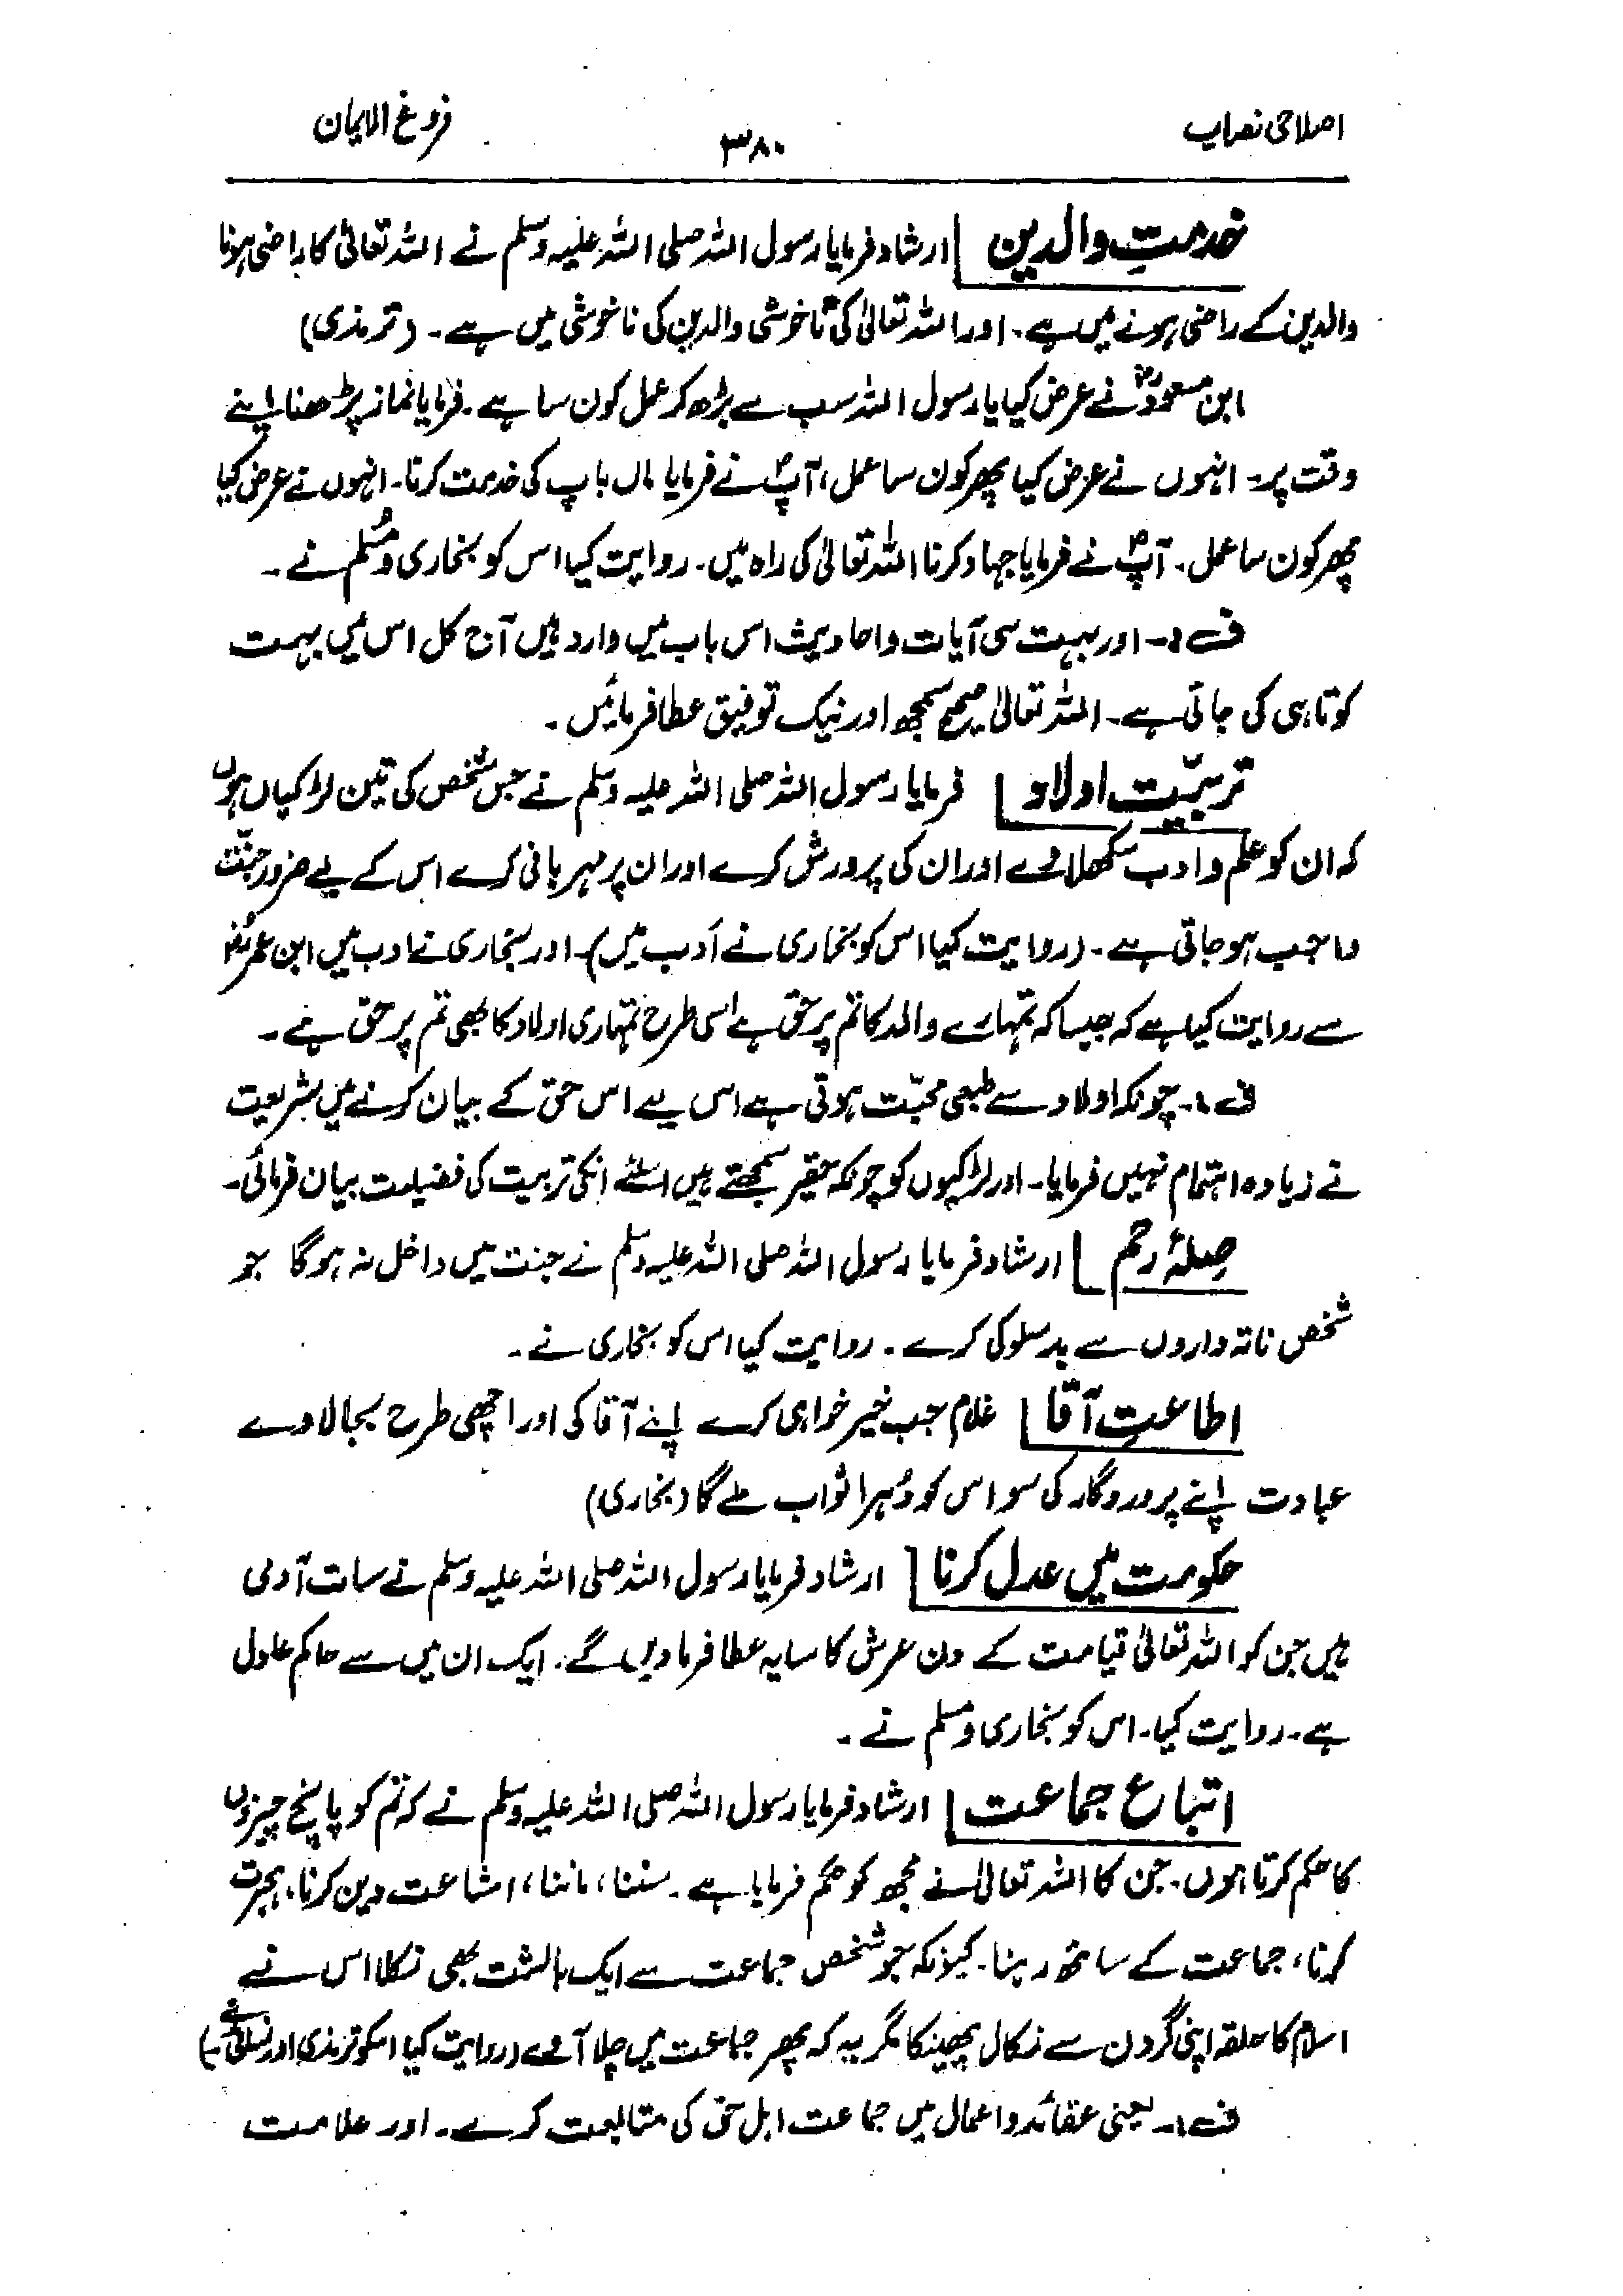 اصلاحی نصاب
۳۸۰
فروغ الایمان
خدمتِ والدین ارشاد فرمایا رسول اللہ صلی اللہ علیہ وسلم نے اللہ تعالیٰ کا راضی ہونا
والدین کے راضی ہونے میں ہے۔ اور اللہ تعالیٰ کی ناخوشی والدین کی ناخوشی میں ہے۔ (ترمذی)
ابن مسعودؓ نے عرض کیا یا رسول اللہ سب سے بڑھ کر عمل کون سا ہے۔ فرمایا نماز پڑھنا اپنے
وقت پر۔ انہوں نے عرض کیا پھر کون سا عمل، آپؐ نے فرمایا ماں باپ کی خدمت کرنا۔ انہوں نے عرض کیا
پھر کون سا عمل۔ آپؐ نے فرمایا جہاد کرنا اللہ تعالیٰ کی راہ میں۔ روایت کیا اس کو بخاری و مُسلم نے۔
ف:۔ اور بہت سی آیات و احادیث اس باب میں وارد ہیں آج کل اس میں بہت
کوتاہی کی جاتی ہے۔ اللہ تعالیٰ صحیح سمجھ اور نیک توفیق عطا فرمائیں۔
تربیّت اولاد فرمایا رسول اللہ صلی اللہ علیہ وسلم نے جس شخص کی تین لڑکیاں ہوں
کہ ان کو علم و ادب سکھلاوے اور ان کی پرورش کرے اور ان پر مہربانی کرے اس کے لیے ضرور جنّت
واجب ہو جاتی ہے۔ (روایت کیا اس کو بخاری نے اَدب میں)۔ اور بخاری نے ادب میں ابن عمرؓ
سے روایت کیا ہے کہ جیسا کہ تمہارے والد کا تم پر حق ہے اسی طرح تمہاری اولاد کا بھی تم پر حق ہے۔
ف:۔ چونکہ اولاد سے طبعی محبّت ہوتی ہے اس لیے اس حق کے بیان کرنے میں شریعت
نے زیادہ اہتمام نہیں فرمایا۔ اور لڑکیوں کو چونکہ حقیر سمجھتے ہیں اسلئے انکی تربیت کی فضیلت بیان فرمائی۔
صِلۂ رحم ارشاد فرمایا رسول اللہ صلی اللہ علیہ وسلم نے جنت میں داخل نہ ہوگا جو
شخص ناتہ داروں سے بدسلوکی کرے۔ روایت کیا اس کو بخاری نے۔
اطاعتِ آقا غلام جب خیر خواہی کرے اپنے آقا کی اور اچھی طرح بجا لاوے
عبادت اپنے پروردگار کی سو اس کو دُہرا ثواب ملے گا (بخاری)
حکومت میں عدل کرنا ارشاد فرمایا رسول اللہ صلی اللہ علیہ وسلم نے سات آدمی
ہیں جن کو اللہ تعالیٰ قیامت کے دن عرش کا سایہ عطا فرمادیں گے۔ ایک ان میں سے حاکم عادل
ہے۔ روایت کیا۔ اس کو بخاری و مسلم نے۔
اتباع جماعت ارشاد فرمایا رسول اللہ صلی اللہ علیہ وسلم نے کہ تم کو پانچ چیزوں
کا حکم کرتا ہوں۔ جن کا اللہ تعالیٰ نے مجھ کو حکم فرمایا ہے۔ سننا، ماننا، اشاعت دین کرنا، ہجرت
کرنا، جماعت کے ساتھ رہنا۔ کیونکہ جو شخص جماعت سے ایک بالشت بھی نکلا اس نے
اسلام کا حلقہ اپنی گردن سے نکال پھینکا مگر یہ کہ پھر جماعت میں چلا آوے (روایت کیا اسکو ترمذی اور نسائی نے۔)
ف:۔ یعنی عقائد و اعمال میں جماعت اہل حق کی متابعت کرے۔ اور علامت